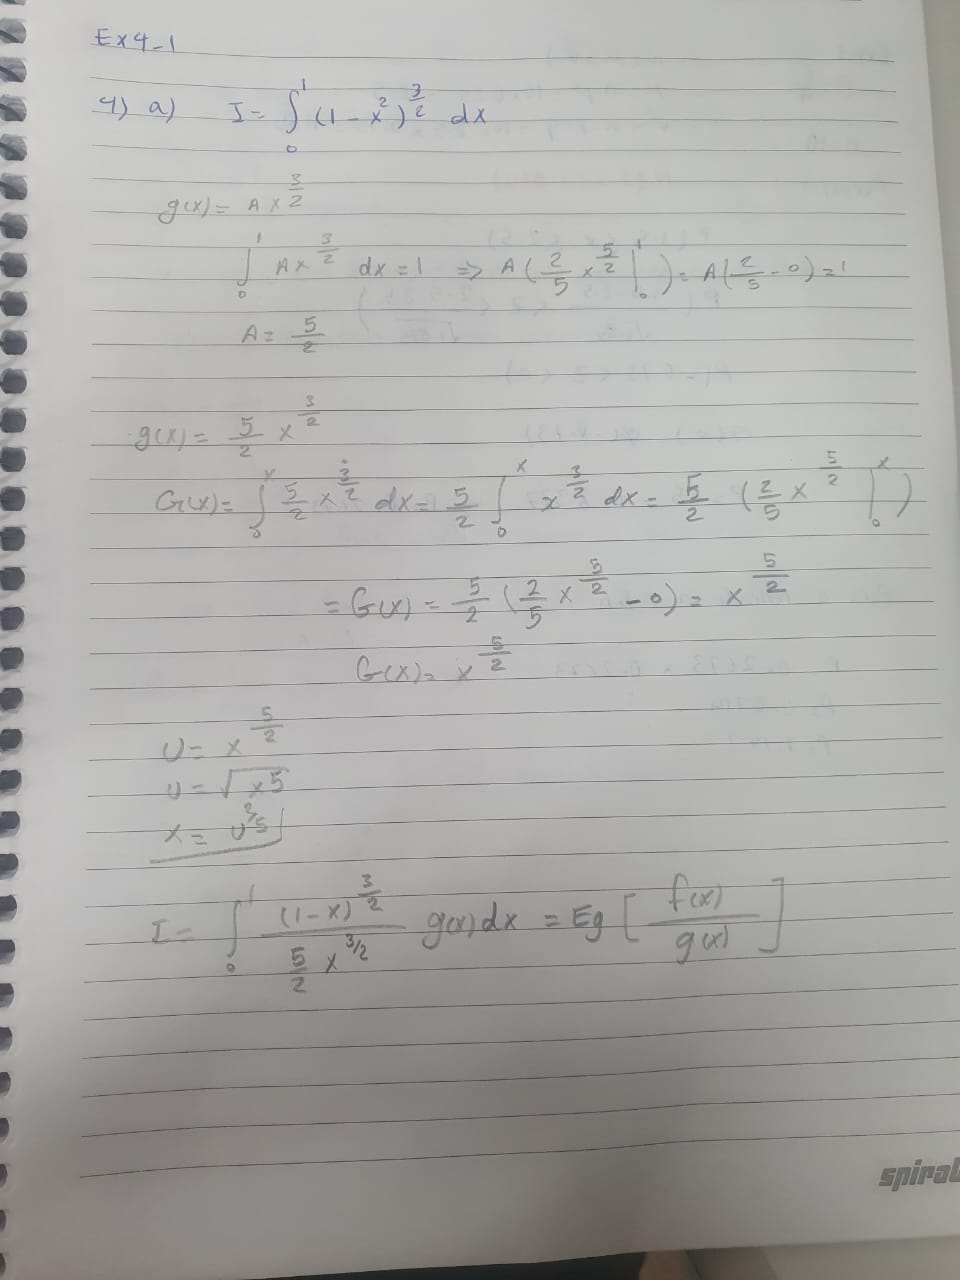 Ex 4-1
4) a) I = ∫₀¹ (1 - x²)^(3/2) dx
g(x) = A x^(3/2)
∫₀¹ A x^(3/2) dx = 1 => A(2/5 x^(5/2) |₀¹) = A(2/5 - 0) = 1
A = 5/2
g(x) = 5/2 x^(3/2)
G(x) = ∫₀ˣ 5/2 x^(3/2) dx = 5/2 ∫₀ˣ x^(3/2) dx = 5/2 (2/5 x^(5/2) |₀ˣ)
= G(x) = 5/2 (2/5 x^(5/2) - 0) = x^(5/2)
G(x) = x^(5/2)
U = x^(5/2)
U = √x5
x = U^(2/5)
I = ∫₀¹ (1-x)^(3/2) / (5/2 x^(3/2)) g(x) dx = Eg [f(x) / g(x)]
spiral